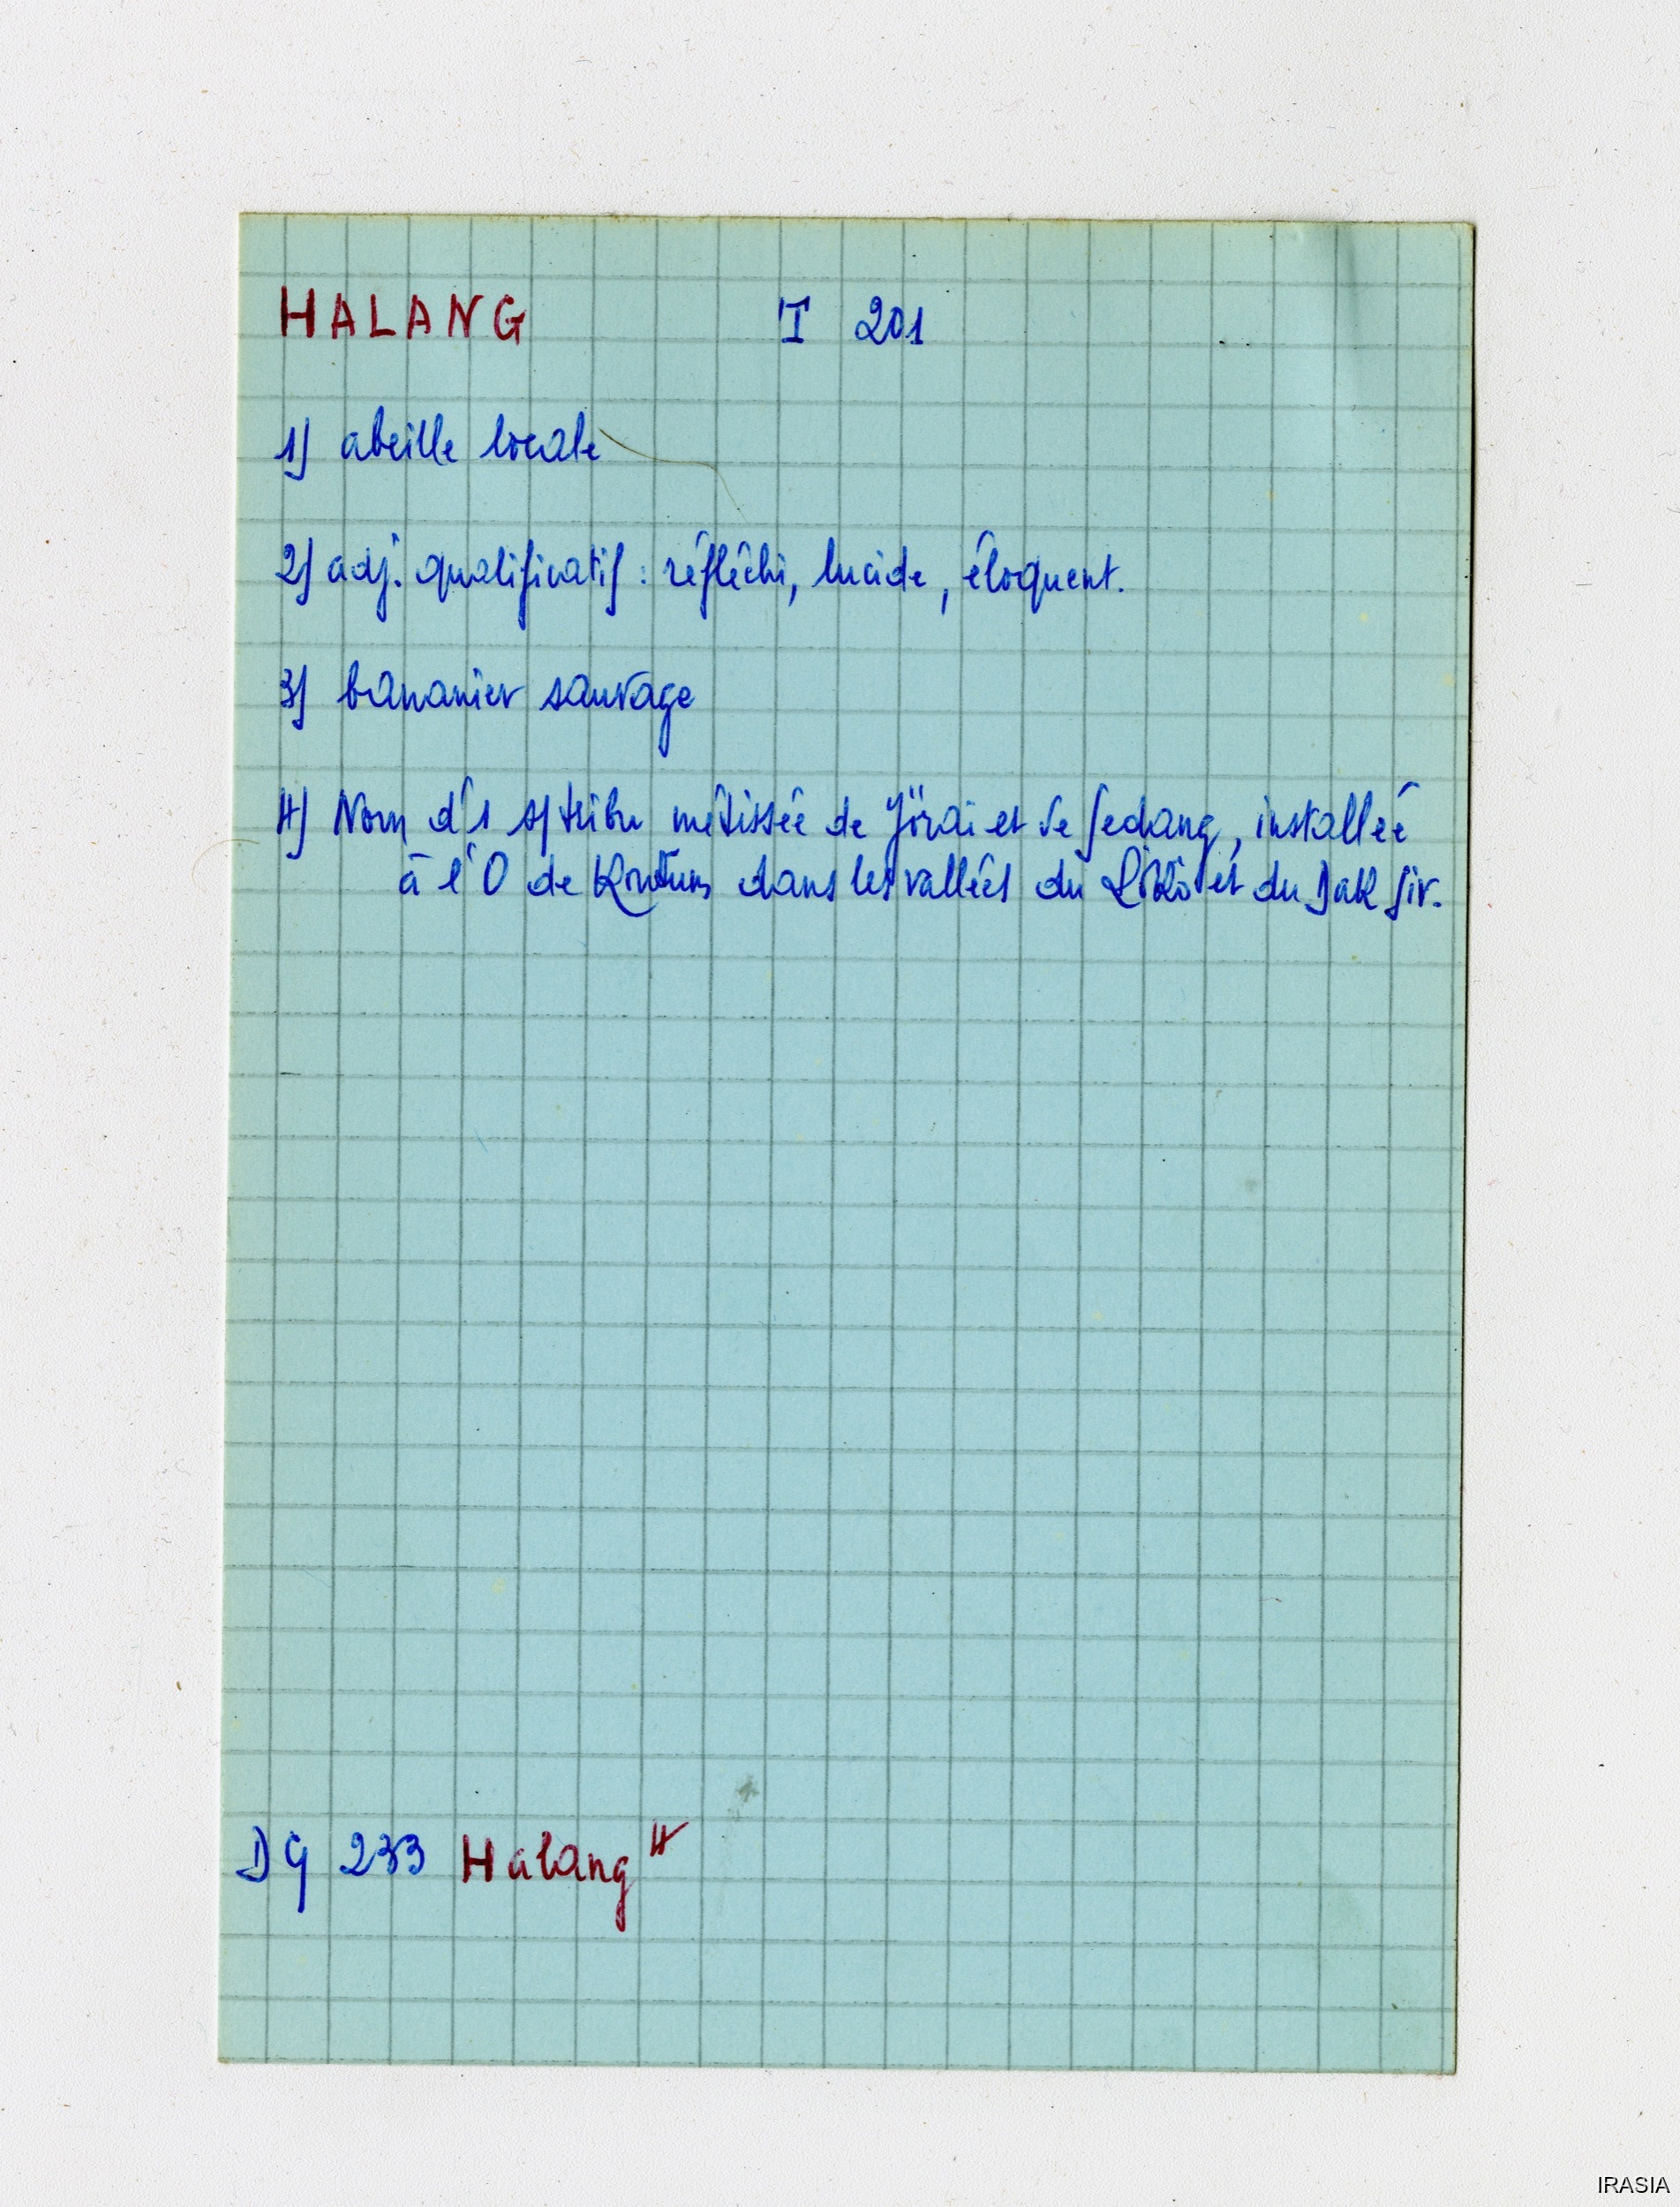 HALANG I 201
1) abeille locale
2) adj. qualificatif : réfléchi, lucide, éloquent.
3) bananier sauvage
4) Nom d'1 s/tribu métissée de Jörai et de Sedang, installée
à l'O de Kontum dans les vallées du et du Dak Sir.
DG 233 Halang 4
IRASIA